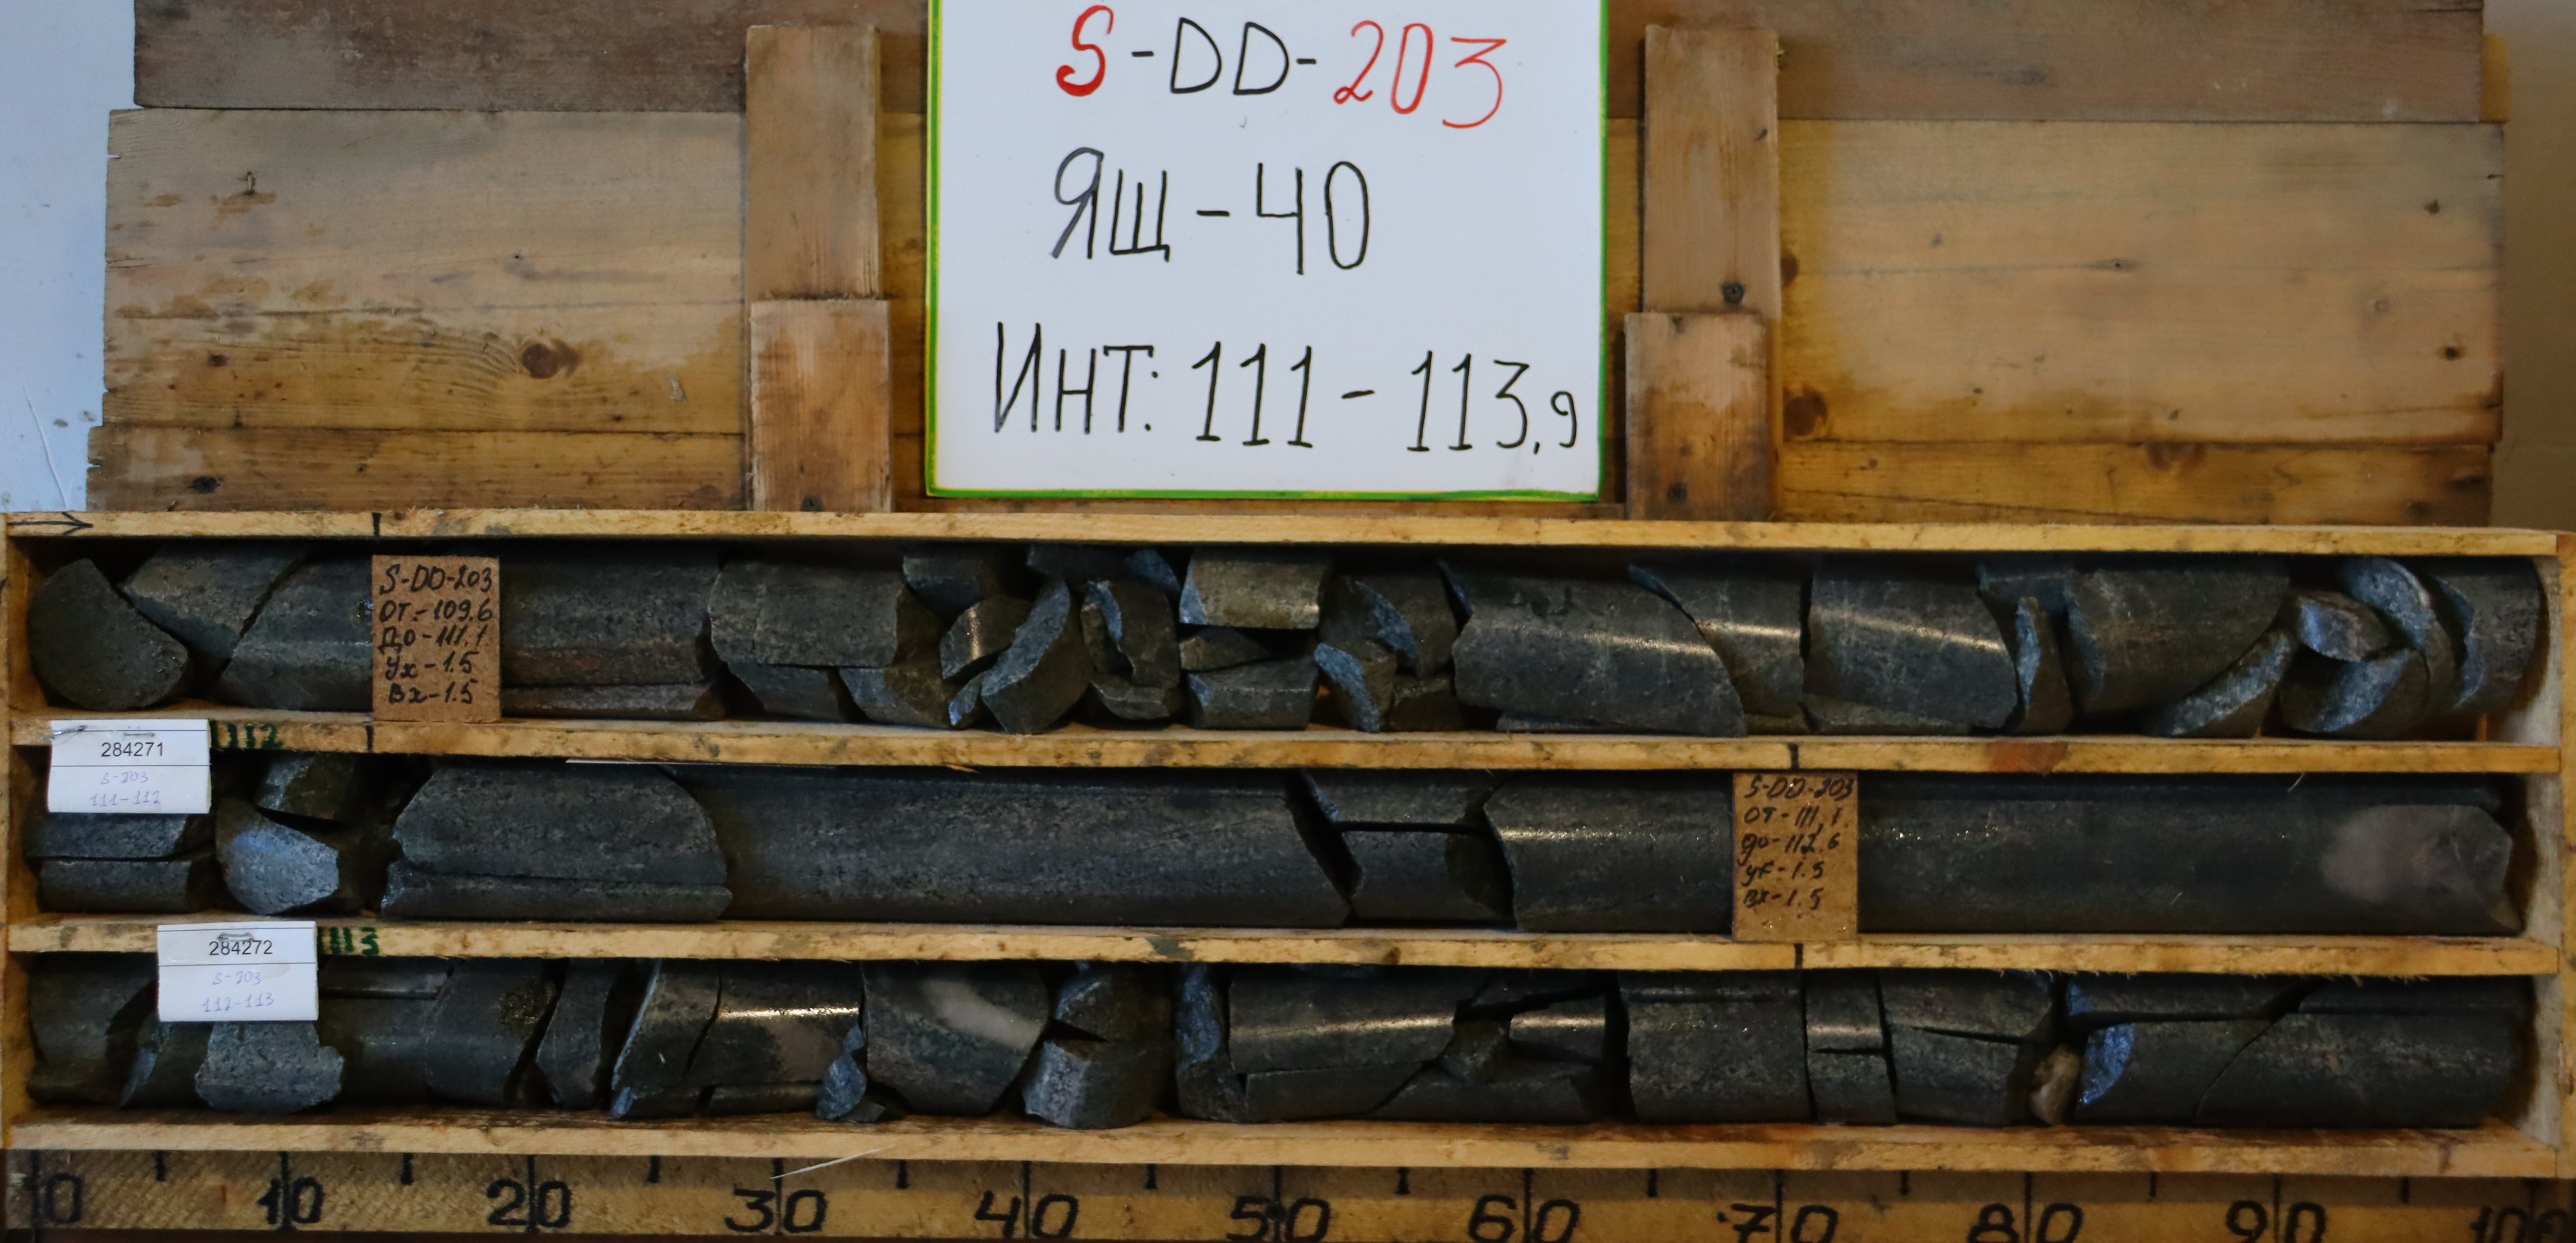 S-DD-203
ЯЩ-40
ИНТ: 111-113,9
S-DD-203
ОТ-109.6
До-111.1
Ух-1.5
Вх-1.5
284271
S-203
111-112
112
S-DD-203
ОТ-111,1
до-112.6
ух-1.5
Вх-1.5
284272
S-203
112-113
113
0 10 20 30 40 50 60 70 80 90 100